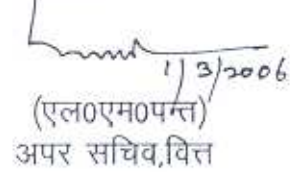 1/3/2006
(एल0एम0पन्त)
अपर सचिव,वित्त